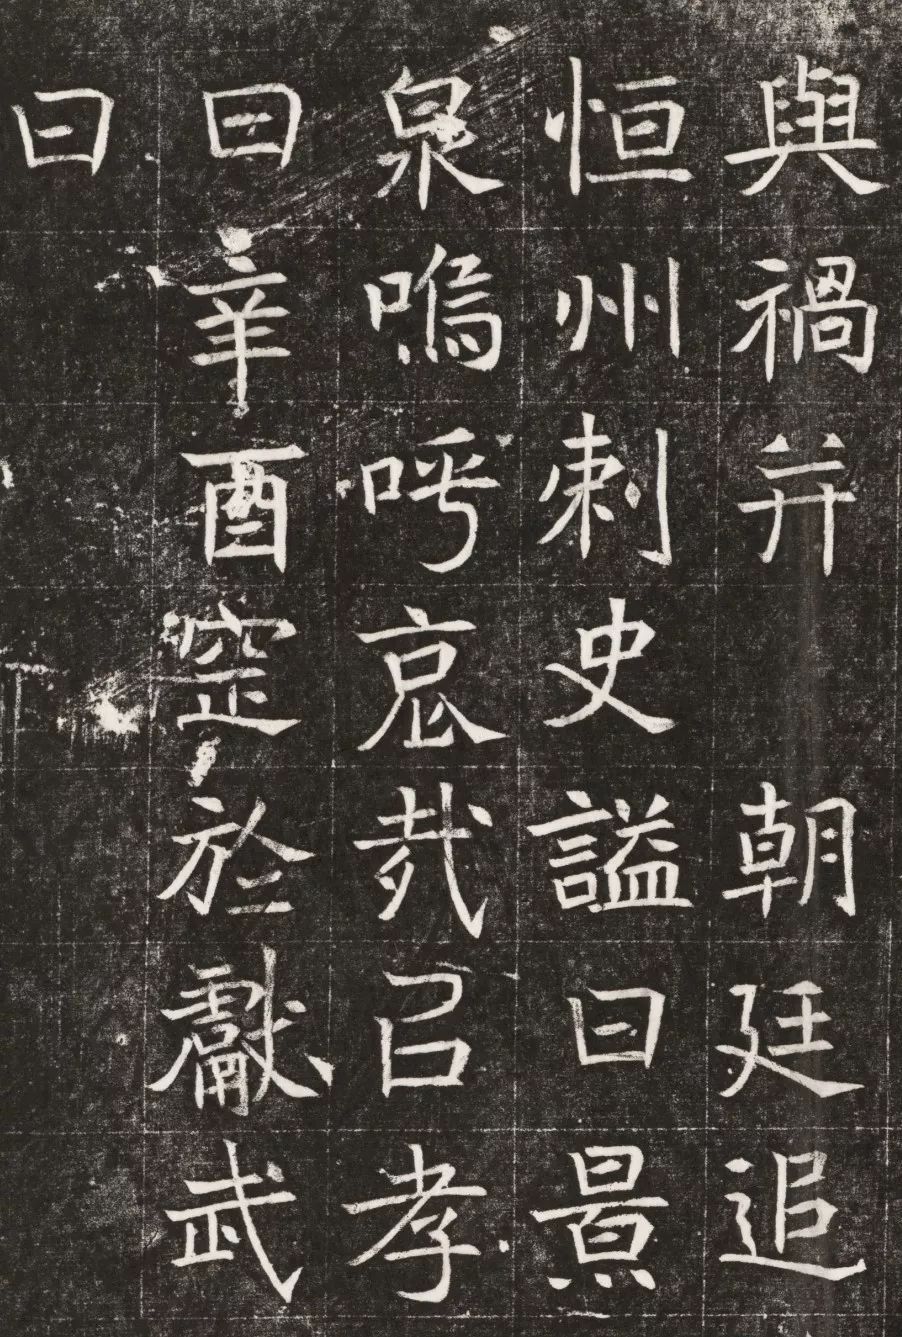 與禍并　朝廷追
恒州刺史謚曰景
泉嗚呼哀哉㠯孝
日辛酉窆於獻武
曰